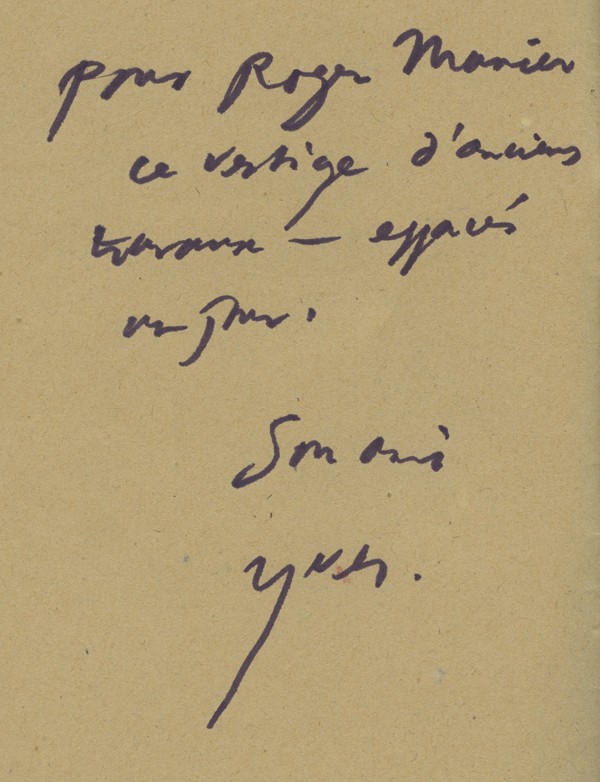 pour Roger Munier
ce vestige d'anciens
travaux — effacés
un jour.
Son ami
Yves.